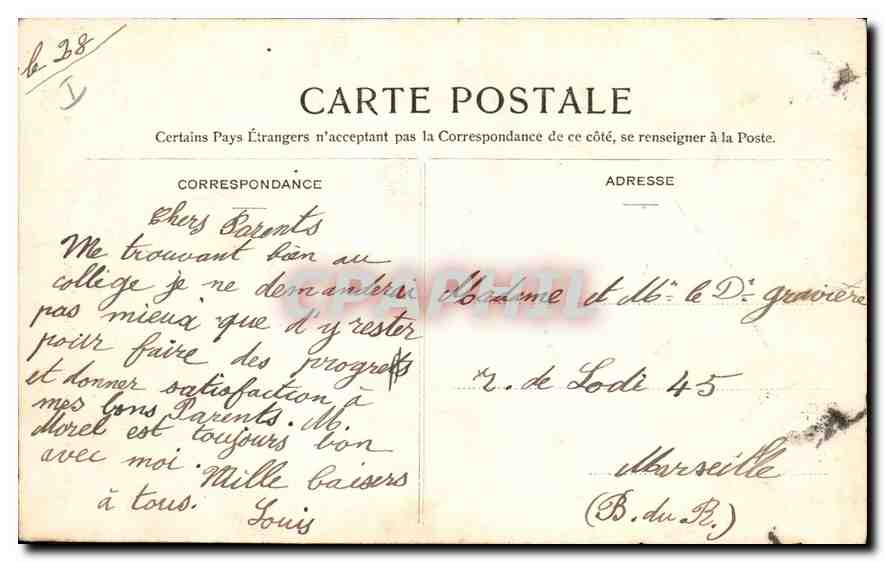 le 28
I
CARTE POSTALE
Certains Pays Étrangers n'acceptant pas la Correspondance de ce côté, se renseigner à la Poste.
CORRESPONDANCE
Chers Parents
Me trouvant bien au
collège je ne demanderai
pas mieux que d'y rester
pour faire des progrets
et donner satisfaction à
mes bons Parents. M.
Morel est toujours bon
avec moi.
Mille baisers
à tous.
Louis
ADRESSE
Madame et Mr le Dr gravière
r. de Lodi 45
Marseille
(B. du R.)
CPAPHIL